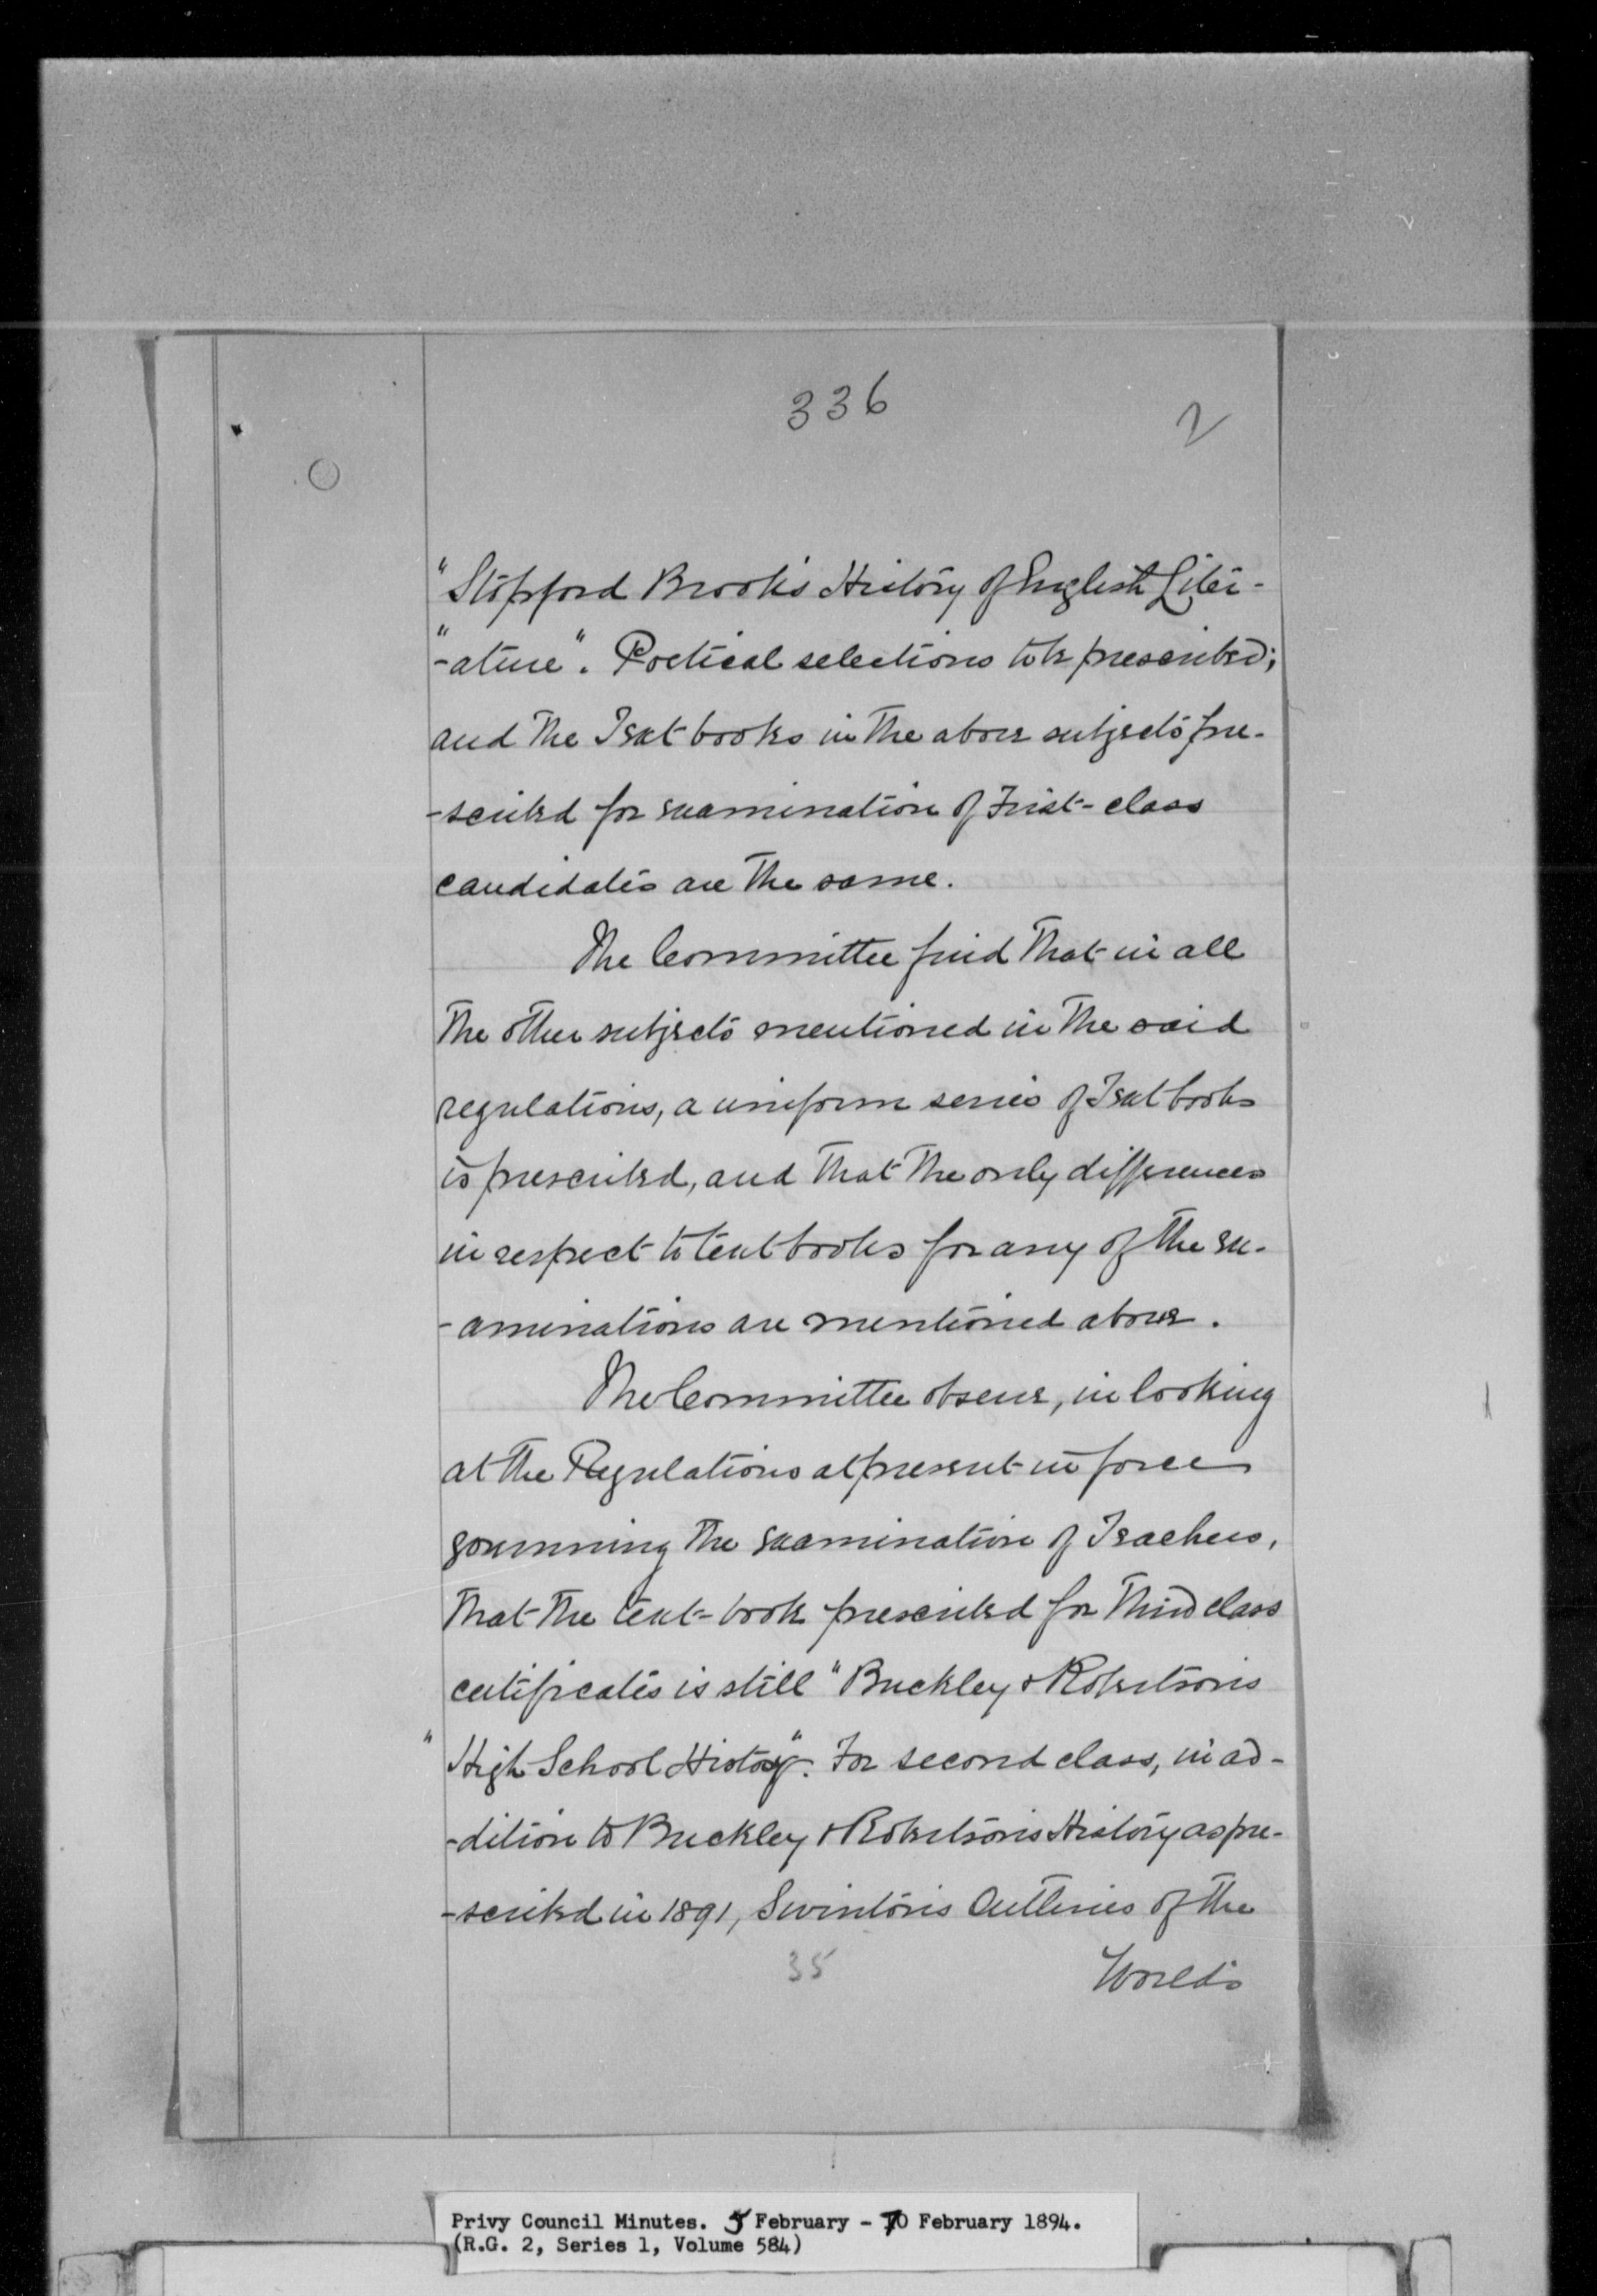 336
2
"Stopford Brook's History of English Liter-
"-ature". Poetical selections to be prescribed;
and the Text books in the above subjects pre-
-scribed for examination of First-class
candidates are the same.
The Committee find that in all
the other subjects mentioned in the said
regulations, a uniform series of Text books
is prescribed, and that the only differences
in respect to text books for any of the ex-
-aminations are mentioned above.
The Committee observe, in looking
at the Regulations at present in force
governing the examination of Teachers,
that the text-book prescribed for Third class
certificates is still "Buckley & Robertson's
"High School History". For second class, in ad-
-dition to Buckley & Robertson's History as pre-
-scribed in 1891, Swinton's Outlines of the
35
World's
Privy Council Minutes. 5 February - 10 February 1894.
(R.G. 2, Series 1, Volume 584)